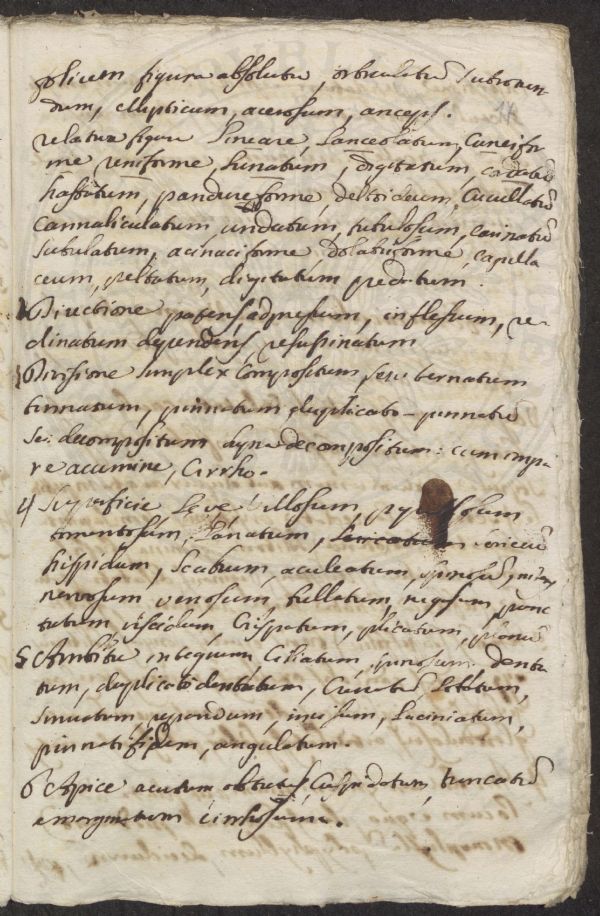 figura absoluta, orbiculatũ subrotun
dum, ellipticum, acerosum, anceps.
relatiua figura Lineare, Lanceolatum, Cuneifor
me reniforme, Lunatum, digitatum, cordatũ
hastatum, panduræforme, deltoideum, Cucullatũ
Cannaliculatum, undatum, tubulosum, carinatũ
subulatum, acinaciforme Dolabriforme, capilla
ceum, peltatum, digitatum
Directione patens, adpressum, inflexum, re-
clinatum dependens resupinatum
Divisione simplex Compositum, seu ternatum
pinnatum, duplicato-pinnatũ
decompositum decompositum: cum impa
re acumine, Cirrho.
4 Superficie Leve villosum,
tomentosum, Lanatum, sericeũ
hispidum, Scabrum, aculeatum, spinosũ,
nervosum venosum, bullatum, rugosum, punc
tatum viscidum Crispatum, plicatum, planũ
5 Ambitu integrum, Ciliatum, spinosum denta
tum, duplicato dentatum, Crenatũ Lobatum,
sinuatum, repandum, incisum, Laciniatum,
pinnatifidum, angulatum.
6 Apice acutum obtusum Cuspidatum, truncatũ
emarginatum Cirrhosum.